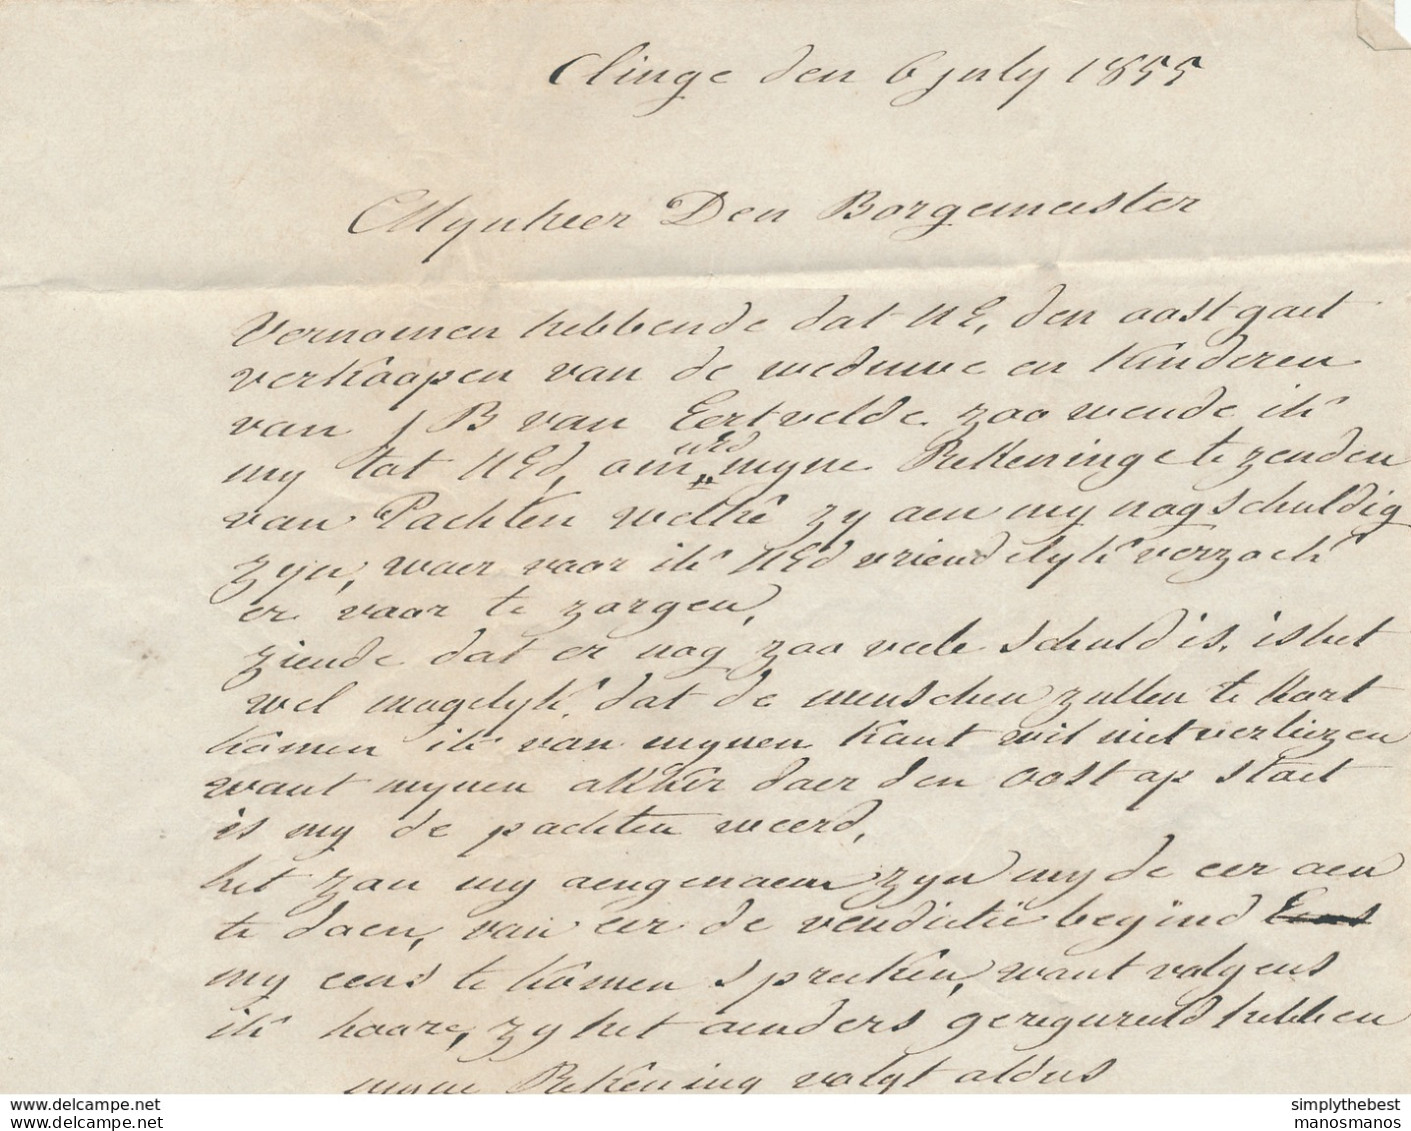 Clinge den 6 july 1855
Mynheer Den Borgemeester
Vernomen hebbende dat UE, den oost gaet
verkoopen van de weduwe en kinderen
van J B van Eertvelde zoo wende ik
my tot UEd, om
UEd
myne Rekeninge te zenden
van Pachten welke zy aen my nog schuldig
zyn, waer voor ik UEd vriendelyk verzoek
er voor te zorgen,
ziende dat er nog zoo veele schuld is, is het
wel mogelyk dat de menschen zullen te kort
komen ik van mynen kant wil niet verliezen
want mynen akker daer den oost op staet
is my de pachten weerd,
het zou my aengenaem zyn my de eer aen
te doen, van eer de venditie begind Eens
my eens te komen spreeken, want volgens
ik hoore, zy het anders geregureld hebben
myne Rekening volgt aldus
www.delcampe.net
manosmanos
simplythebest
manosmanos